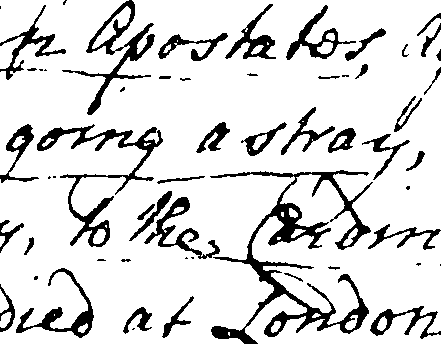 Apostates,
going astray,
to the, Cardin
died at London